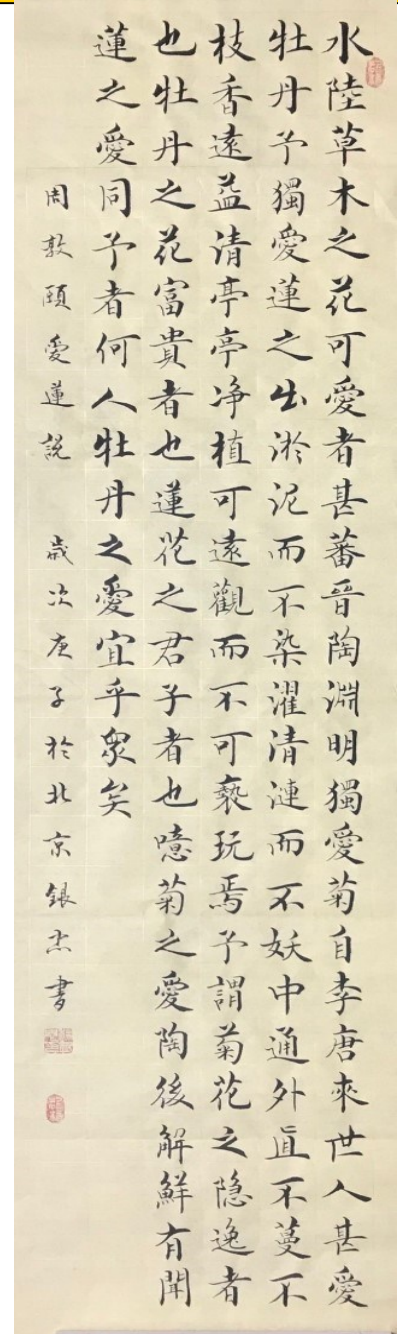 水陸草木之花可愛者甚蕃晉陶淵明獨愛菊自李唐來世人甚愛
牡丹予獨愛蓮之出淤泥而不染濯清漣而不妖中通外直不蔓不
枝香遠益清亭亭净植可遠觀而不可褻玩焉予謂菊花之隐逸者
也牡丹之花富貴者也蓮花之君子者也噫菊之愛陶後解鮮有聞
蓮之愛同予者何人牡丹之愛宜乎眾矣
周敦頤愛蓮説 歲次庚子於北京銀杰書